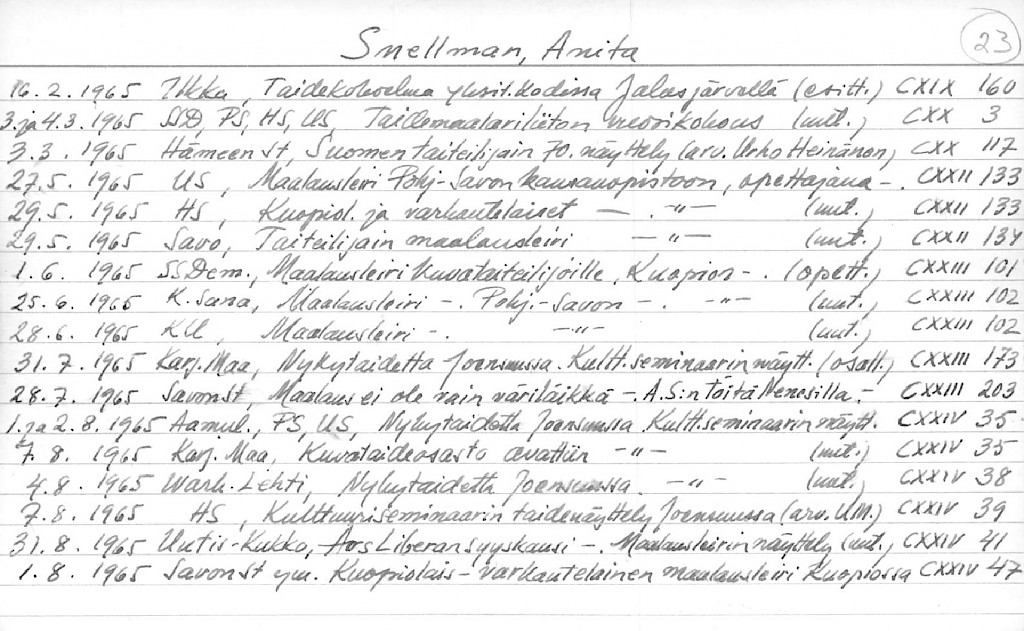 Snellman, Anita
23
16.2.1965 Ilkka, Taidekokoelma yksit.kodissa Jalasjärvellä (esitt.) CXIX 160
3. ja 4.3.1965 SSD, PS, HS, US, Taidemaalariliiton vuosikokous (mt.) CXX 3
3.3.1965 Hämeen st, Suomen taiteilijain 70. näyttely (arv. Urho Heinänen) CXX 117
27.5.1965 US, Maalausleiri Pohj-Savon kansanopistoon, opettajana -. CXXII 133
29.5.1965 HS, Kuopiol. ja varkautelaiset — . -"- (mt.) CXXII 133
29.5.1965 Savo, Taiteilijain maalausleiri -"- (mt.) CXXII 134
1.6.1965 SSDem., Maalausleiri kuvataiteilijoille, Kuopion -. (opett.) CXXIII 101
25.6.1965 K.Sana, Maalausleiri -. Pohj.-Savon -. -"- (mt.) CXXIII 102
28.6.1965 KU, Maalausleiri -. -"- (mt.) CXXIII 102
31.7.1965 Karj.Maa, Nykytaidetta Joensuussa. Kultt.seminaarin näytt. (osall.) CXXIII 173
28.7.1965 Savon st, Maalaus ei ole vain väriläikkä -. A.S:n töitä Menesilla.- CXXIII 203
1. ja 2.8.1965 Aamul., PS, US, Nykytaidetta Joensuussa Kultt.seminaarin näytt. CXXIV 35
7.8.1965 Karj.Maa, Kuvataideosasto avattiin -"- (mt.) CXXIV 35
4.8.1965 Wark.Lehti, Nykytaidetta Joensuussa. -"- (mt.) CXXIV 38
7.8.1965 HS, Kulttuuriseminaarin taidenäyttely Joensuussa (arv. U.M.) CXXIV 39
31.8.1965 Uutis-Kukko, Ars Liberan syyskausi -. Maalausleirin näyttely (mt.) CXXIV 41
1.8.1965 Savon st ym. Kuopiolais-varkautelainen maalausleiri Kuopiossa CXXIV 47